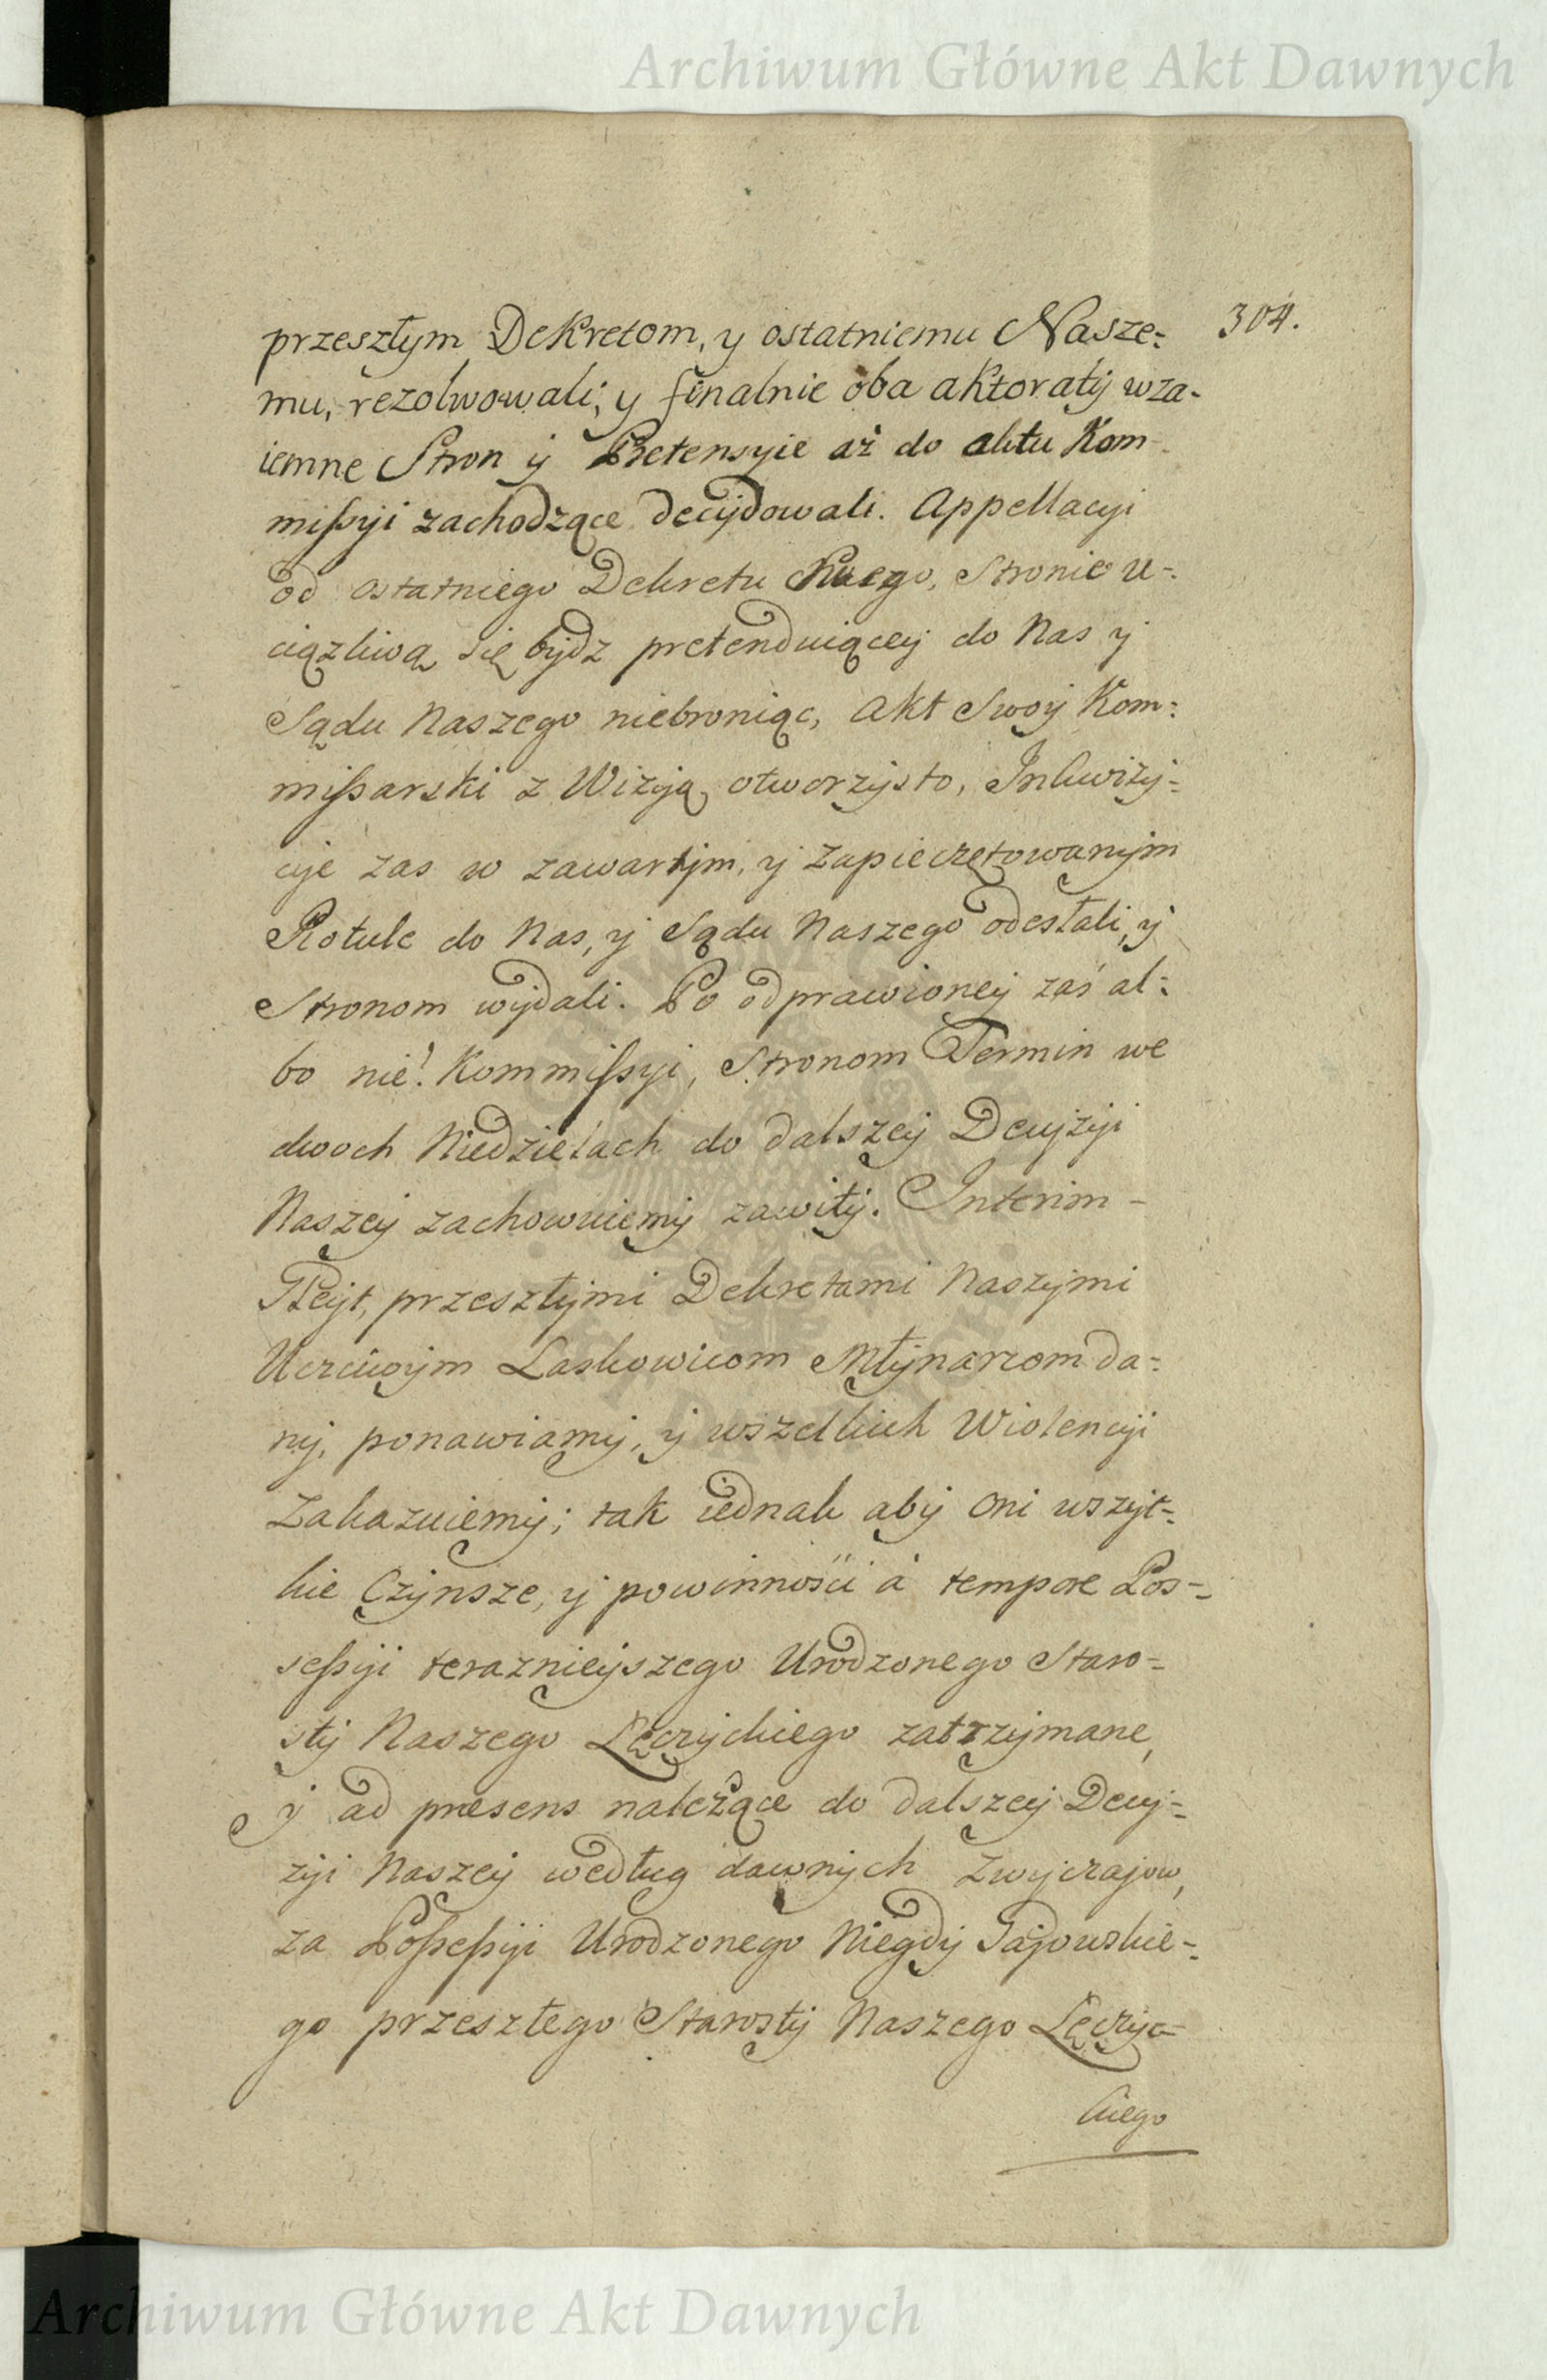 Archiwum Główne Akt Dawnych
304.
przeszłym Dekretom, y ostatniemu Nasze:
mu, rezolwowali; y finalnie oba aktoraty wza-
iemne Stron y Pretensyie aż do aktu Kom-
mißyi zachodzące decydowali. Appellacyi
od ostatniego Dekretu Swego, Stronie u-:
ciążliwą się bydz pretenduiącey do Nas y
Sądu Naszego niebroniąc, Akt Swoy Kom:
mißarski z Wizyą otworzysto, Inkwizy=
cye zas w zawartym, y zapieczętowanym
Rotule do Nas, y Sądu Naszego odesłali, y
Stronom wydali. Po odprawioney zaś al:
bo nie! Kommißyi, Stronom Termin we
dwoch Niedzielach do dalszey Decyzyi
Naszey zachowuiemy zawity. Interim -
Gleyt, przeszłymi Dekretami Naszymi
Uczciwym Laskowicom Młynarzom da-:
ny, ponawiamy, y wszelkich Wiolencyi
Zakazuiemy; tak iednak aby oni wszyt-:
kie Czynsze, y powinności à tempore Pos-:
seßyi teraznieyszego Urodzonego Staro-:
sty Naszego Łęczyckiego zatrzymane,
y ad præsens należące do dalszey Decy-:
zyi Naszey według dawnych Zwyczajow,
za Poßeßyi Urodzonego Niegdy Gajowskie-:
go przeszłego Starosty Naszego Łęczyc-
kiego
Archiwum Główne Akt Dawnych